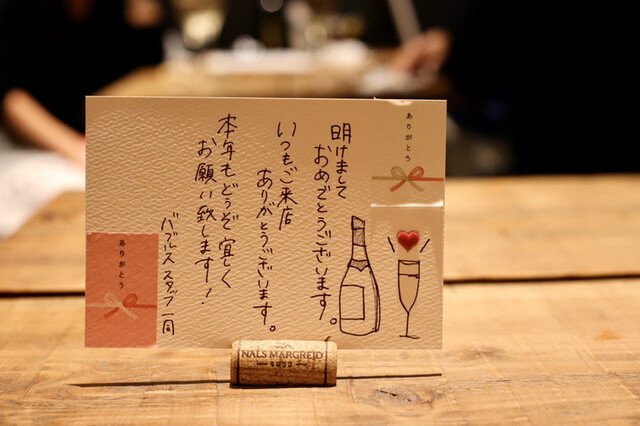 ありがとう
明けまして
おめでとうございます。
いつもご来店
ありがとうございます。
本年もどうぞ宜しく
お願い致します！
バブルス スタッフ一同
ありがとう
NALS MARGREID
1932